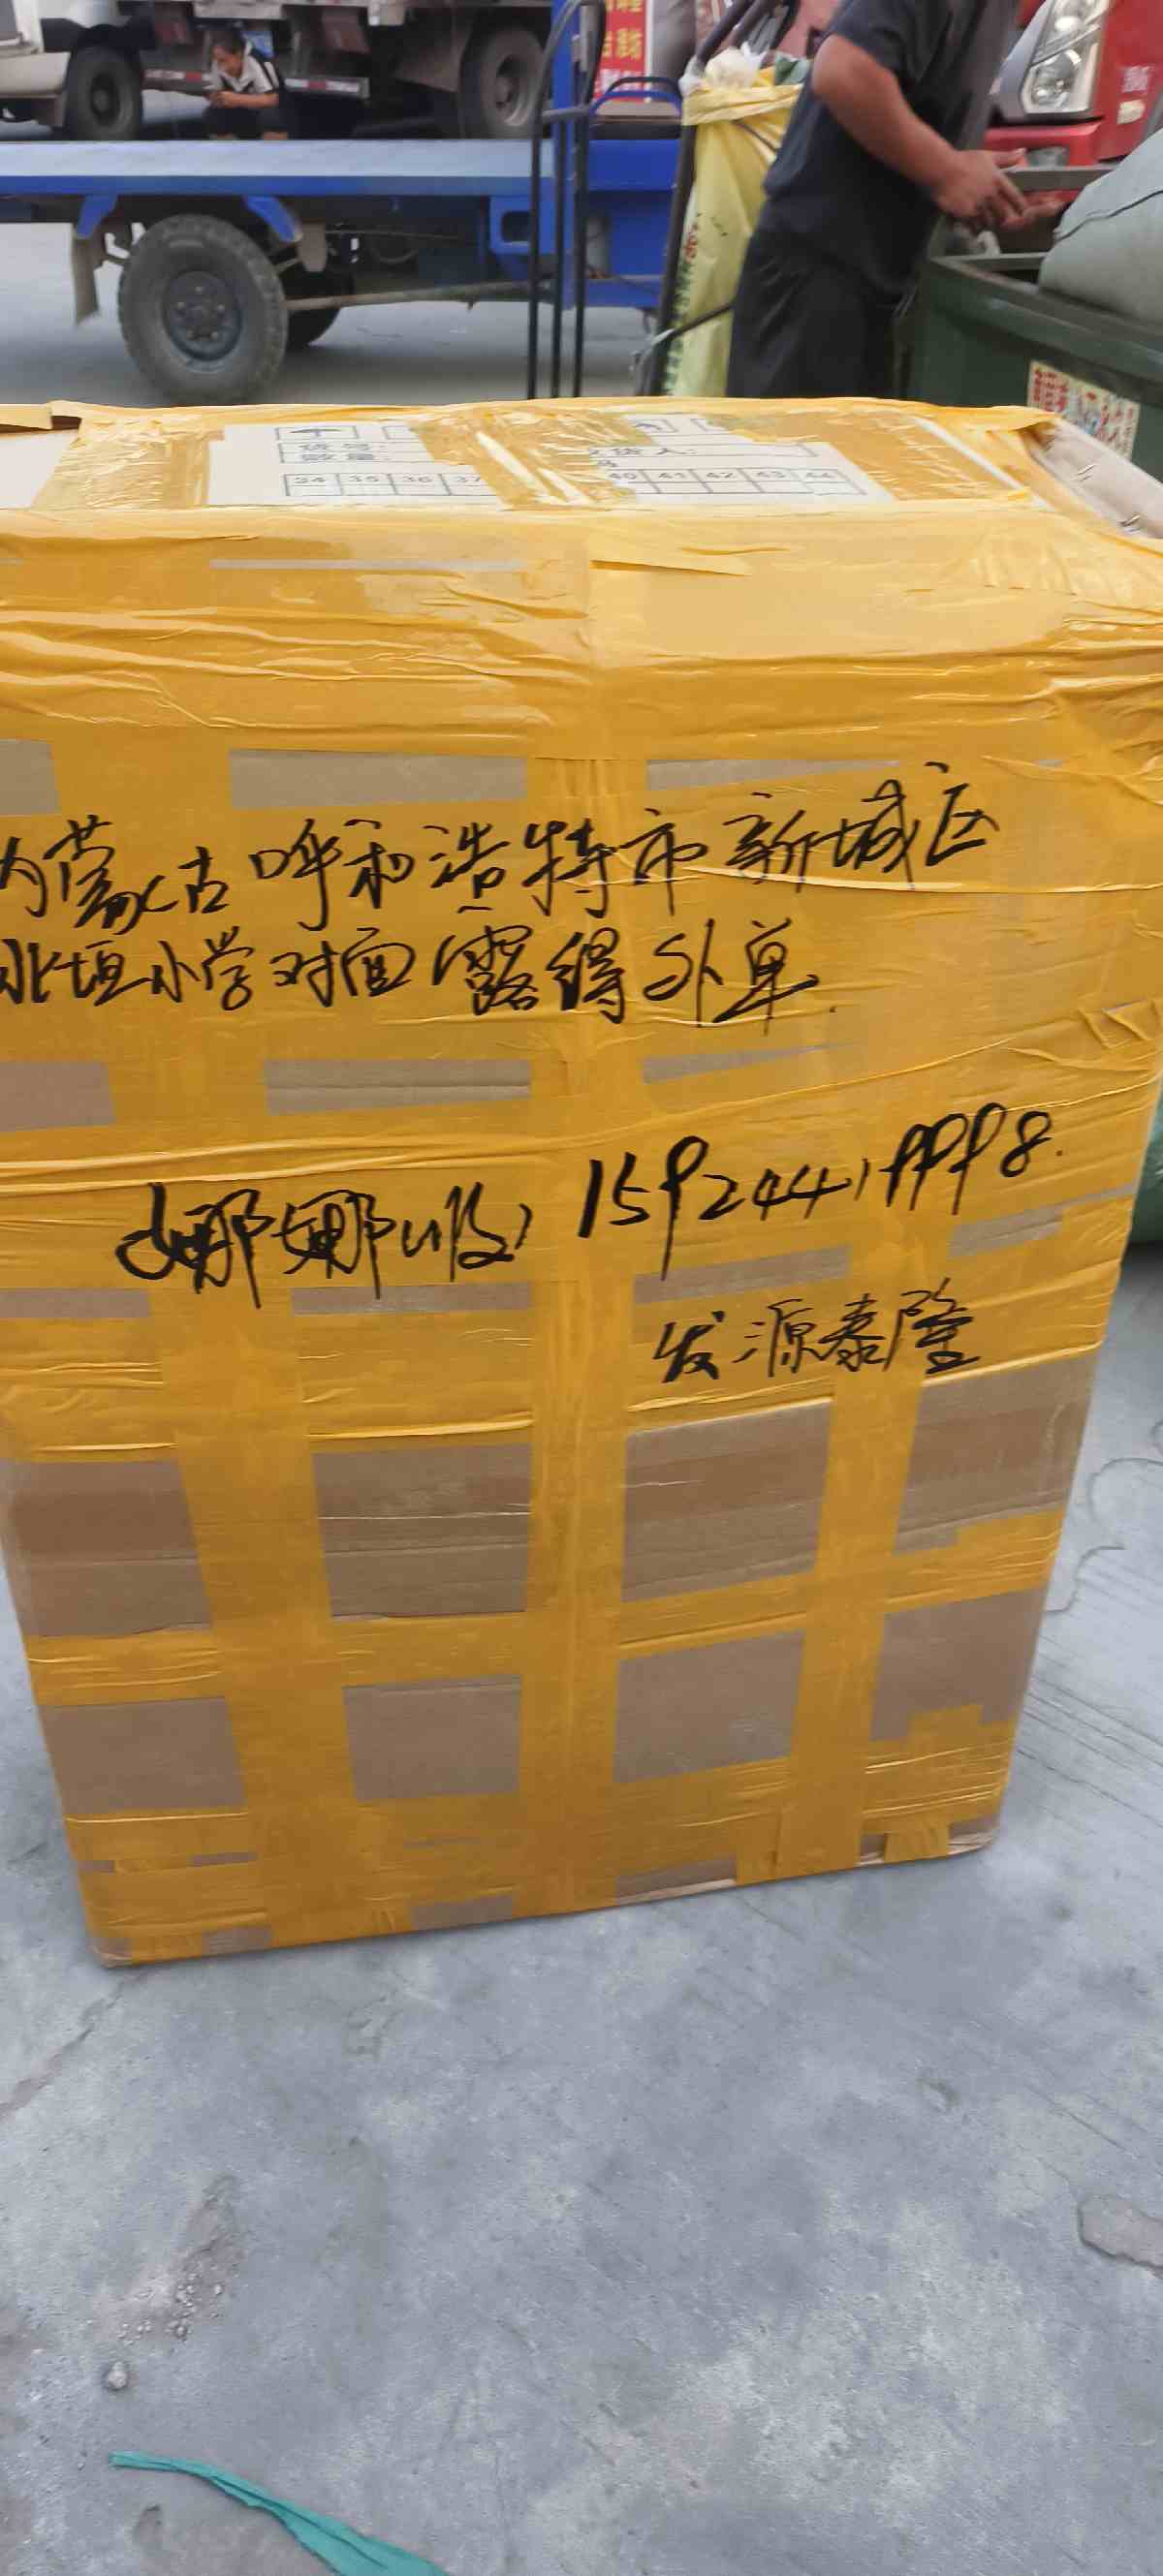 货号:
数量
货人:
34 35 36 37 40 41 42 43 44
内蒙古呼和浩特市新城区
北垣小学对面露得外单.
娜娜收, 15924419998.
发源泰隆